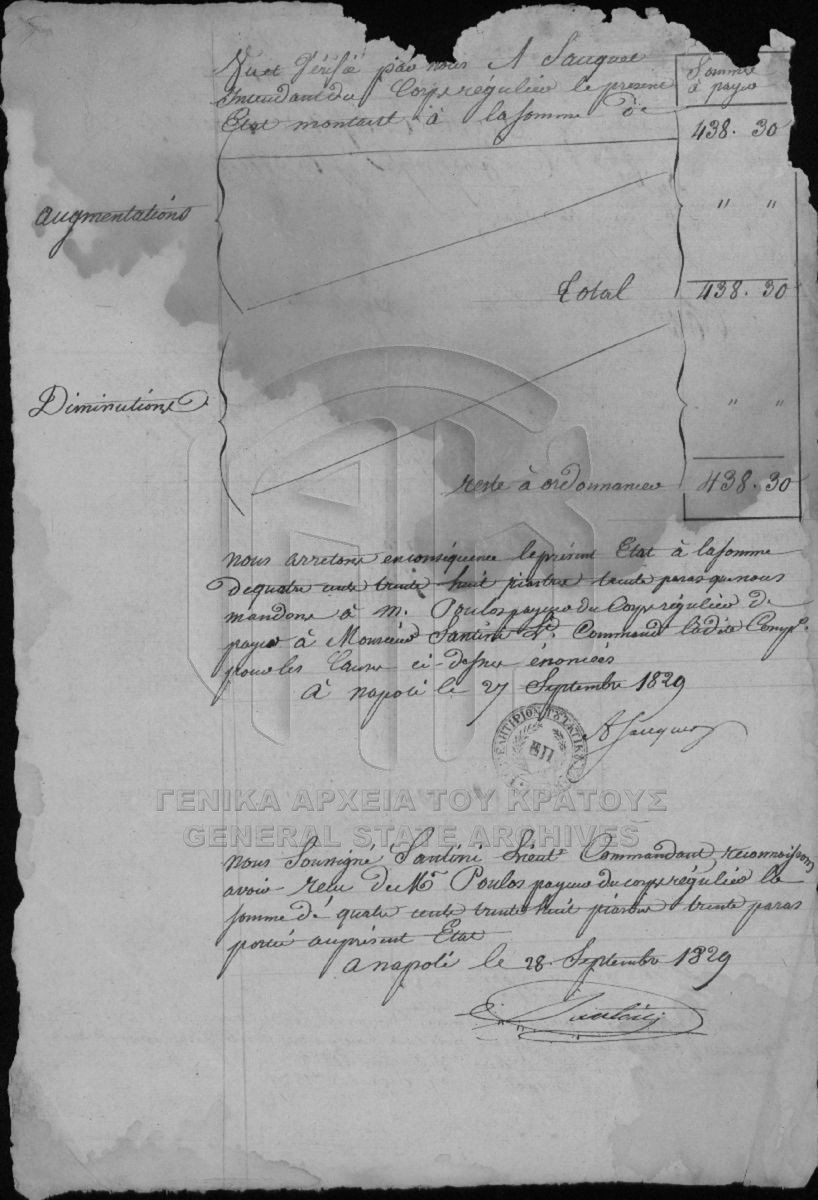 Vu et Vérifié par nous A Sauquet
Intendant du Corps régulier le present
Etat montant à la somme de
Somme
à payer
438. 30
Augmentations
" "
Total
438. 30
Diminutions
" "
reste à ordonnancer
438. 30
nous arretons en conséquence le présent Etat à la somme
de quatre cents trente huit piastres trente paras que nous
mandons à M. Poulos payeur du Corps régulier de
payer à Monsieur Santini Lt. Command ladite Compie.
pour les Causes ci-dessus énoncées
A napoli le 27 Septembre 1829
A Sauquet
nous Soussigné Santini Lieutt. Commandant reconnaissons
avoir recu de Mr Poulos payeur du corps régulier la
somme de quatre cents trente huit piastres trente paras
porté au présent Etat
a napoli le 28 Septembre 1829
Santini
ΓΕΝΙΚΑ ΑΡΧΕΙΑ ΤΟΥ ΚΡΑΤΟΥΣ
GENERAL STATE ARCHIVES